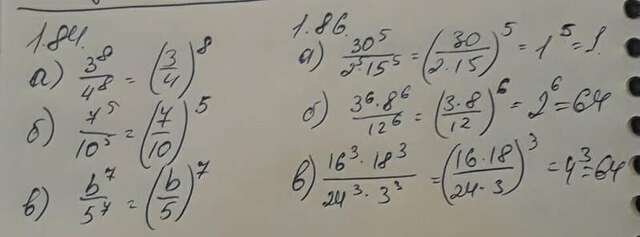 1.84.
а) 3⁸/4⁸ = (3/4)⁸
б) 7⁵/10⁵ = (7/10)⁵
в) b⁷/5⁷ = (b/5)⁷
1.86.
а) 30⁵/2⁵·15⁵ = (30/2·15)⁵ = 1⁵ = 1.
б) 3⁶·8⁶/12⁶ = (3·8/12)⁶ = 2⁶ = 64
в) 16³·18³/24³·3³ = (16·18/24·3)³ = 4³ = 64